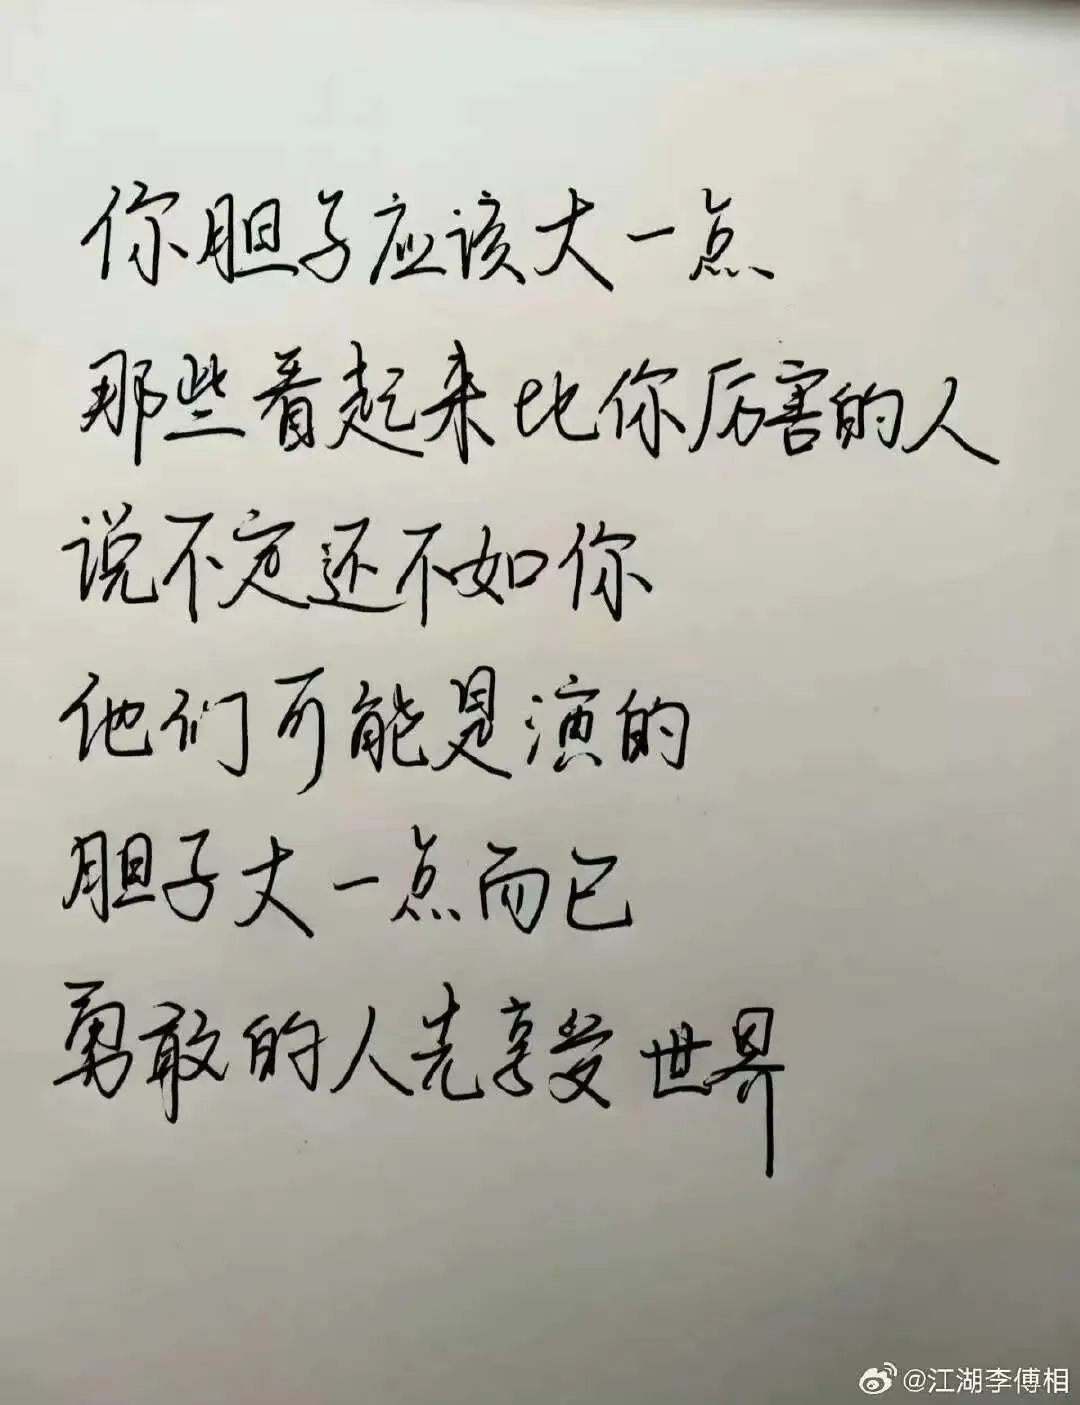 你胆子应该大一点
那些看起来比你厉害的人
说不定还不如你
他们可能是演的
胆子大一点而已
勇敢的人先享受世界
@江湖李傅相